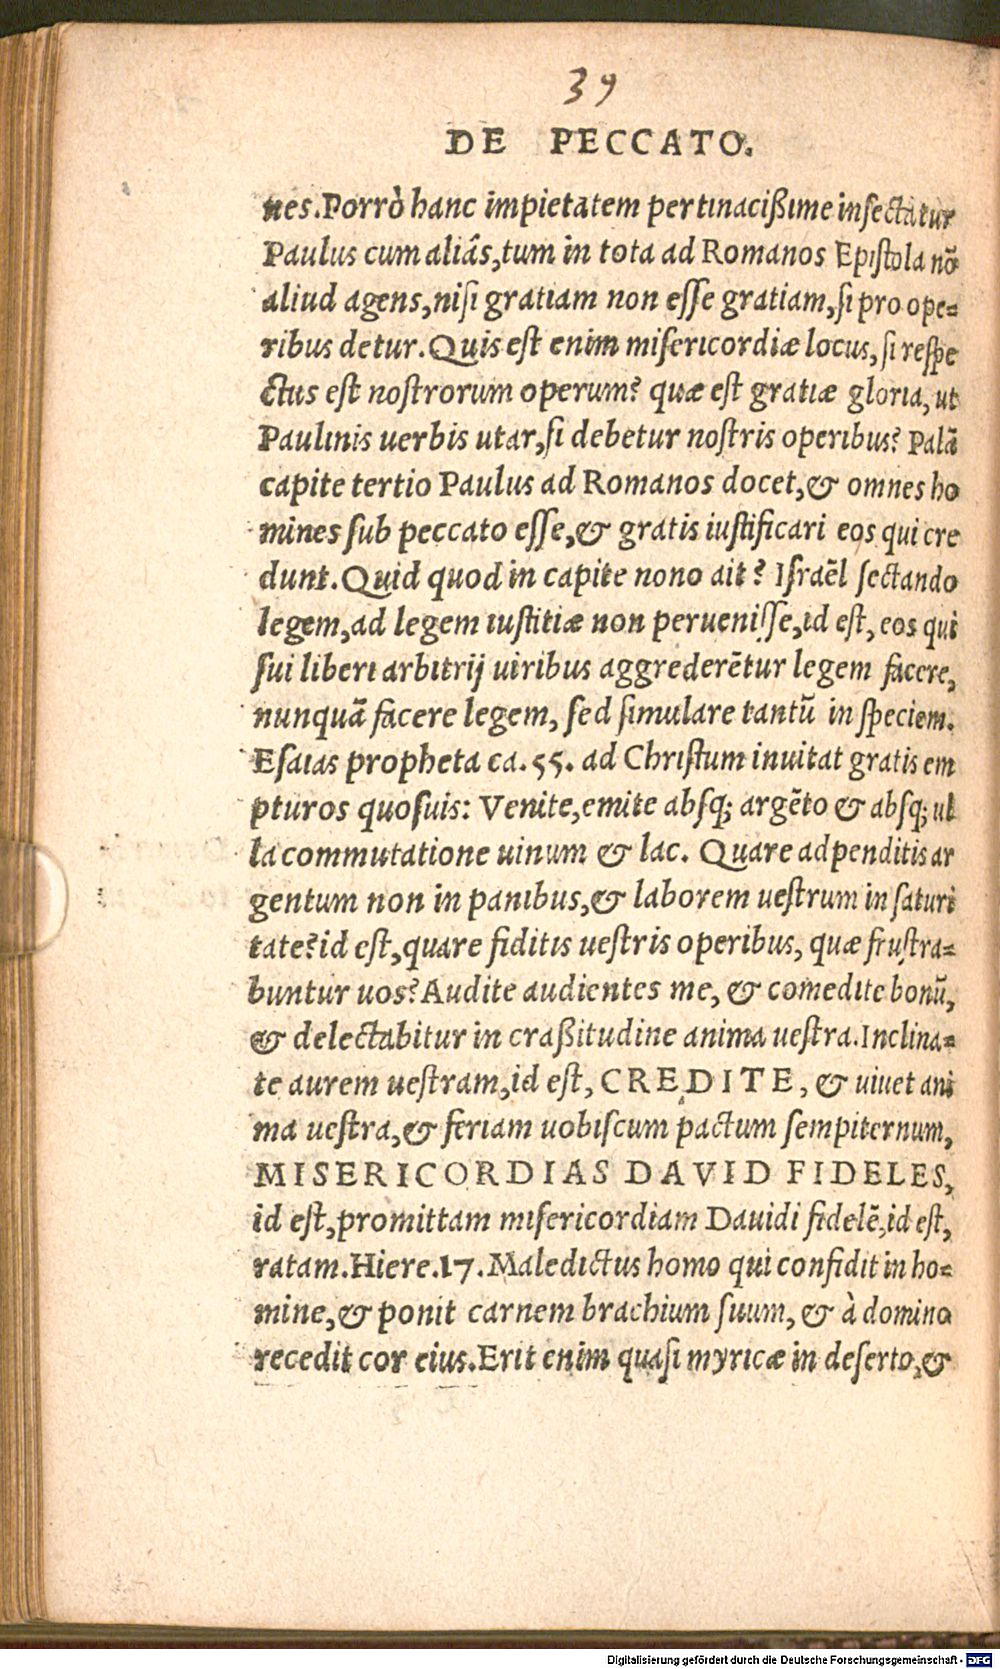 39
DE PECCATO.
nes. Porrò hanc impietatem pertinacißime insectatur
Paulus cum aliâs, tum in tota ad Romanos Epistola nõ
aliud agens, nisi gratiam non esse gratiam, si pro ope-
ribus detur. Quis est enim misericordiæ locus, si respe
ctus est nostrorum operum? quæ est gratiæ gloria, ut
Paulinis uerbis utar, si debetur nostris operibus? Palã
capite tertio Paulus ad Romanos docet, & omnes ho
mines sub peccato esse, & gratis iustificari eos qui cre
dunt. Quid quod in capite nono ait? Israẽl sectando
legem, ad legem iustitiæ non peruenisse, id est, eos qui
sui liberi arbitrij uiribus aggrederẽtur legem facere,
nunquã facere legem, sed simulare tantũ in speciem.
Esaias propheta ca. 55. ad Christum inuitat gratis em
pturos quosuis: Venite, emite absq; argẽto & absq; ul
la commutatione uinum & lac. Quare adpenditis ar
gentum non in panibus, & laborem uestrum in saturi
tate? id est, quare fiditis uestris operibus, quæ frustra-
buntur uos? Audite audientes me, & comedite bonũ,
& delectabitur in craßitudine anima uestra. Inclina-
te aurem uestram, id est, CREDITE, & uiuet ani
ma uestra, & feriam uobiscum pactum sempiternum,
MISERICORDIAS DAVID FIDELES,
id est, promittam misericordiam Dauidi fidelẽ, id est,
ratam. Hiere. 17. Maledictus homo qui confidit in ho-
mine, & ponit carnem brachium suum, & à domino
recedit cor eius. Erit enim quasi myricæ in deserto, &
Digitalisierung gefördert durch die Deutsche Forschungsgemeinschaft - DFG